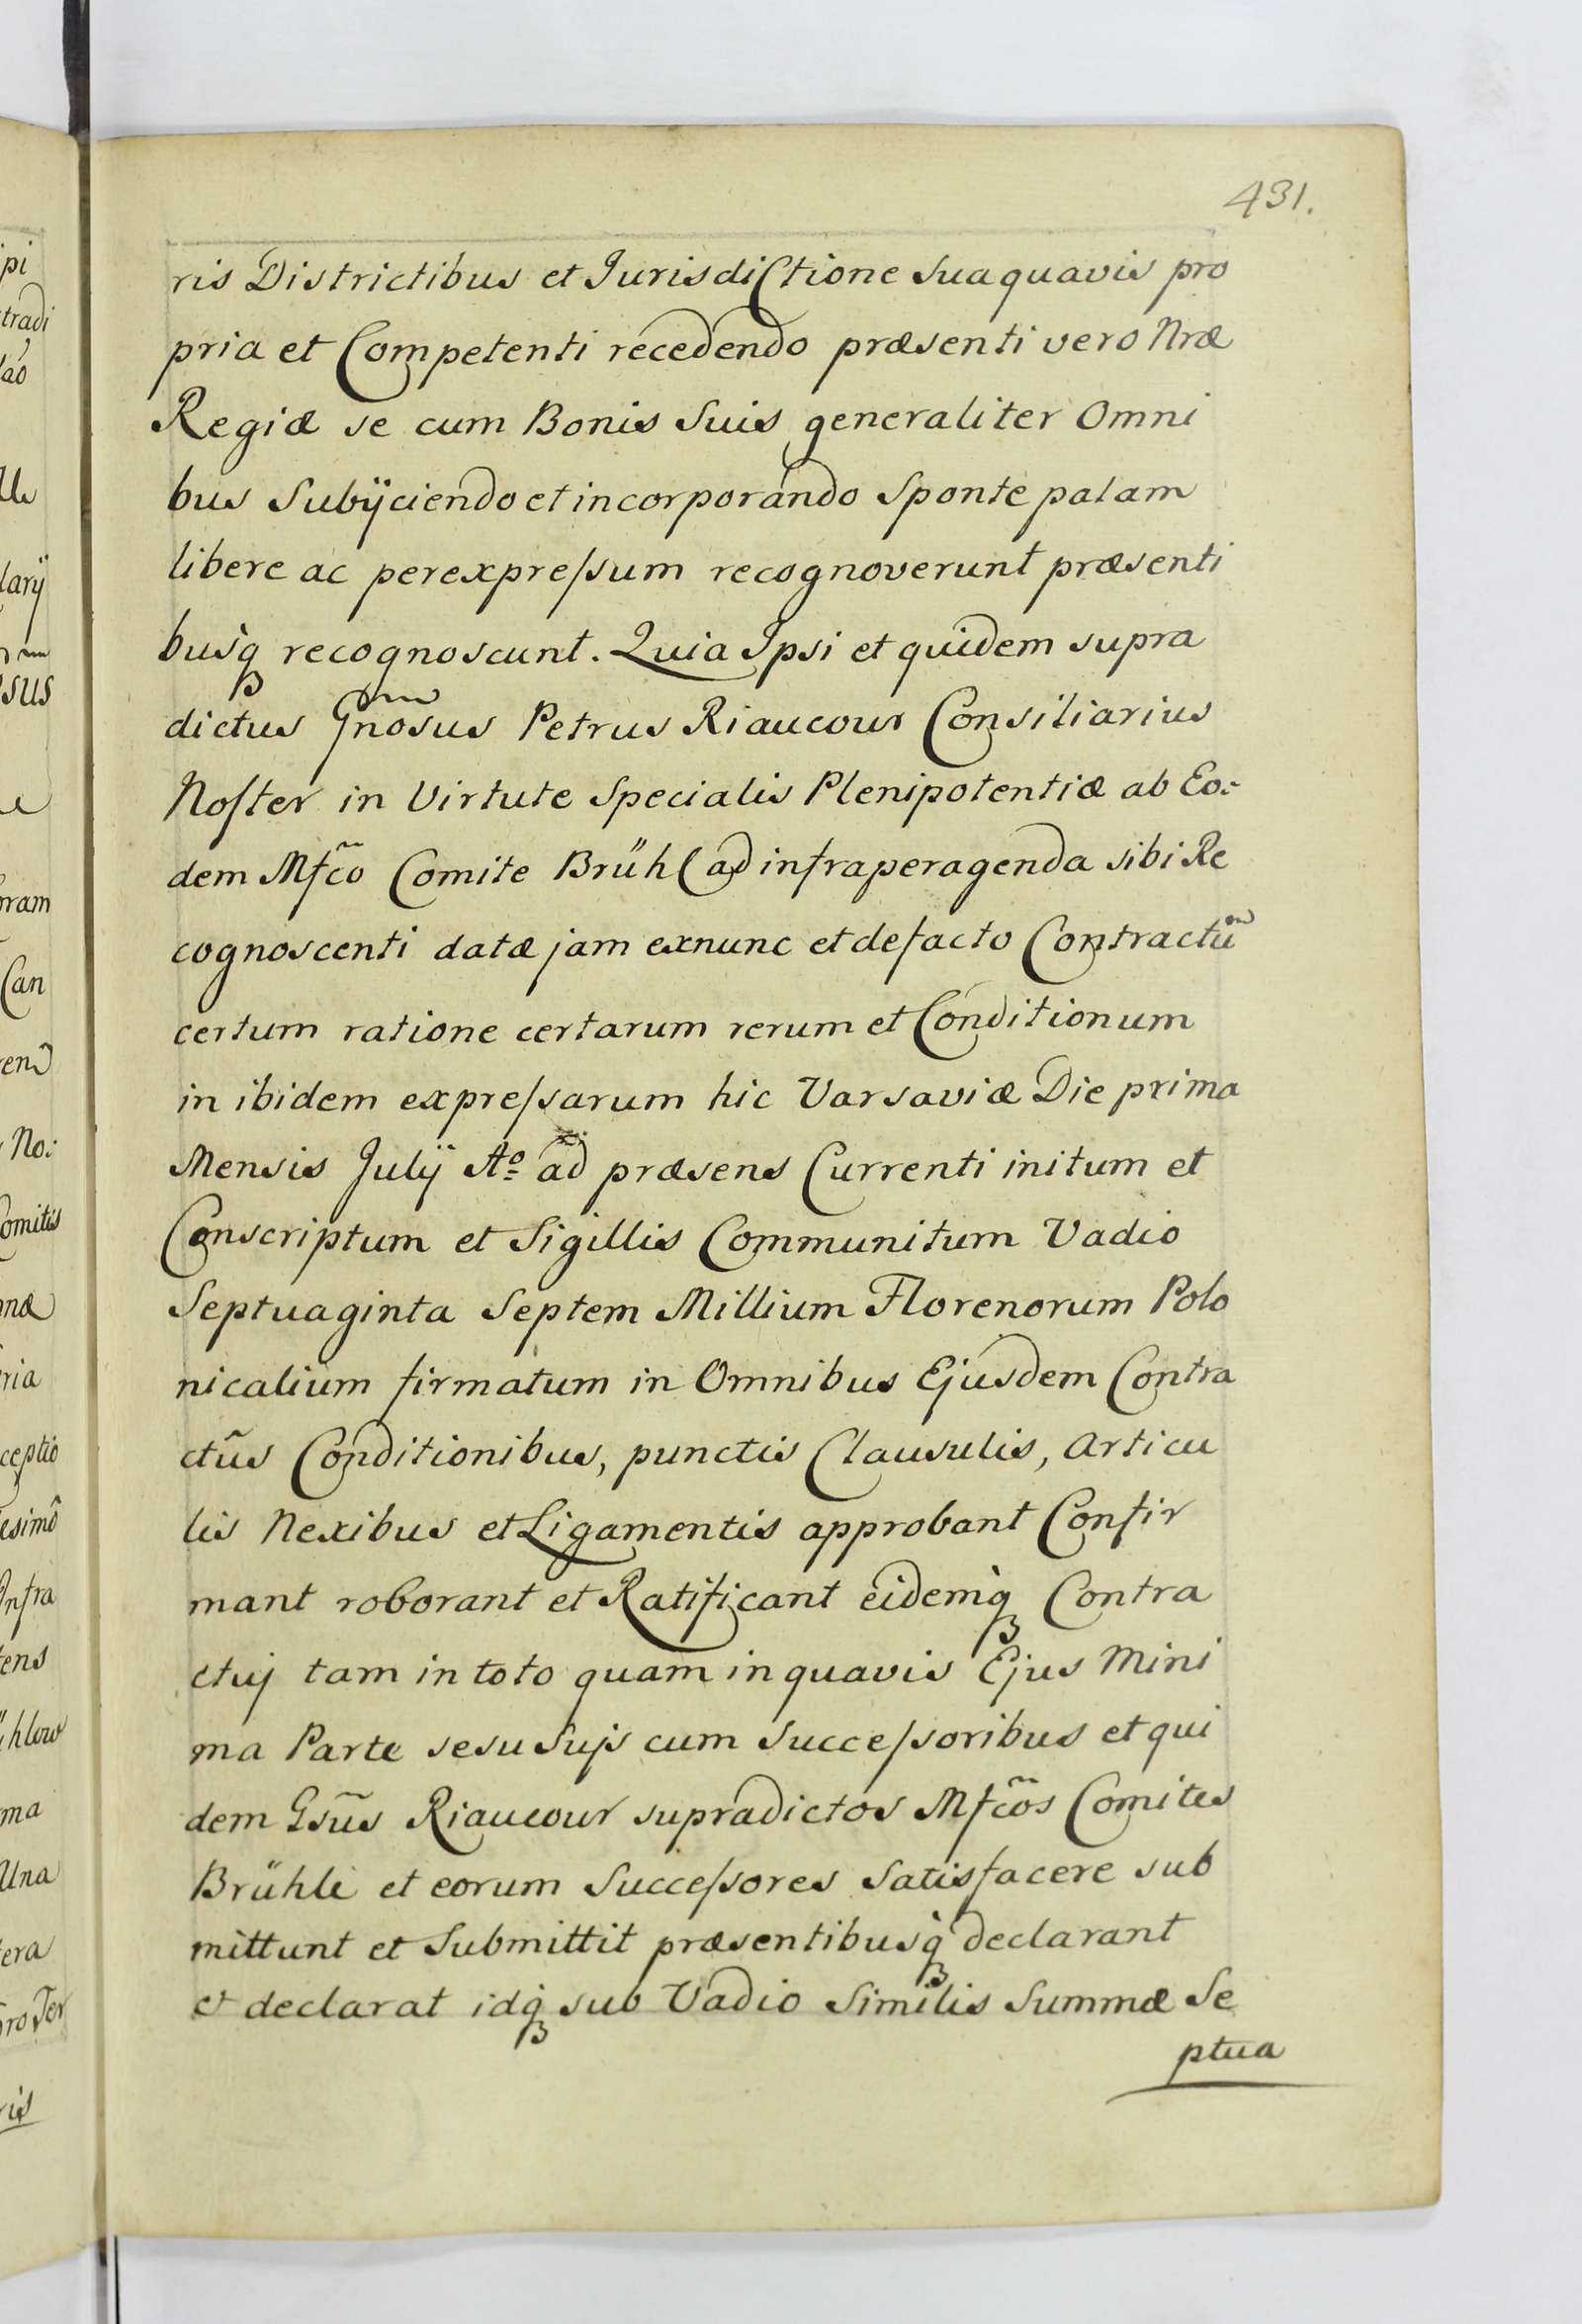 431.
ris Districtibus et Jurisdictione sua quavis pro
pria et Competenti recedendo præsenti vero Nræ
Regiæ se cum Bonis Suis generaliter Omni
bus Subÿciendo et incorporando Sponte palam
libere ac perexpreſsum recognoverunt præsenti
busq́ꝫ recognoscunt. Quia Ipsi et quidem supra
dictus Gnõsus Petrus Riaucour Consiliarius
Noſter in Virtute Specialis Plenipotentiæ ab Eo:
dem Mfc̃o Comite Brühl ad infraperagenda sibi Re
cognoscenti datæ jam exnunc et defacto Contractũ
certum ratione certarum rerum et Conditionum
in ibidem expreſsarum hic Varsaviæ Die prima
Mensis Julÿ Aº ad præsens Currenti initum et
Conscriptum et Sigillis Communitum Vadio
Septuaginta Septem Millium Florenorum Polo
nicalium firmatum in Omnibus Ejusdem Contra
ctũs Conditionibus, punctis Clausulis, Articu
lis Nexibus et Ligamentis approbant Confir
mant roborant et Ratificant eidemq́ꝫ Contra
ctuj tam in toto quam in quavis Ejus Mini
ma Parte sesu Sujs cum Succeſsoribus et qui
dem Gsũs Riaucour supradictos Mfc̃os Comites
Brühle et eorum Succeſsores Satisfacere sub
mittunt et Submittit præsentibusq́ꝫ declarant
et declarat idq́ꝫ sub Vadio Similis Summæ Se
ptua